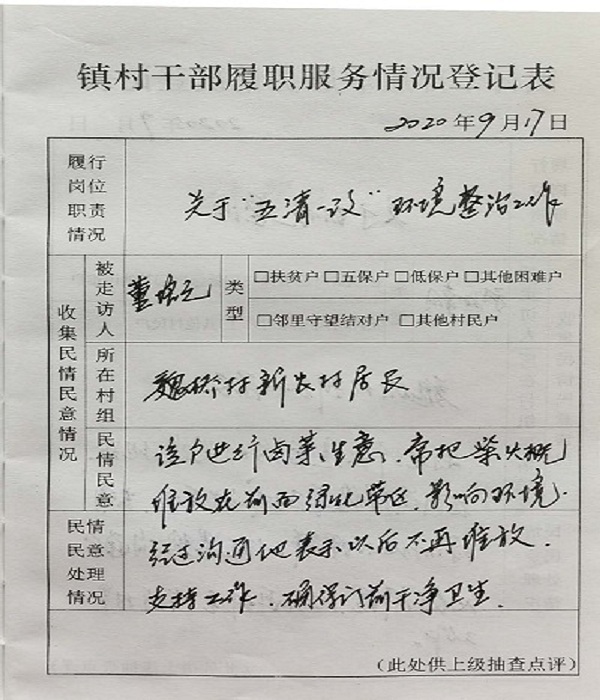 镇村干部履职服务情况登记表
2020年9月17日
履行岗位职责情况
关于“五清一改”环境整治工作
收集民情民意情况
被走访人
董
类型
□扶贫户 □五保户 □低保户 □其他困难户
□邻里守望结对户 □其他村民户
所在村组
魏桥村新农村居民
民情民意
该户进行卤菜生意、常把柴火概
堆放在前面绿化带上，影响环境.
民情民意处理情况
经过沟通他表示以后不再堆放.
支持工作，确保门前干净卫生.
（此处供上级抽查点评）